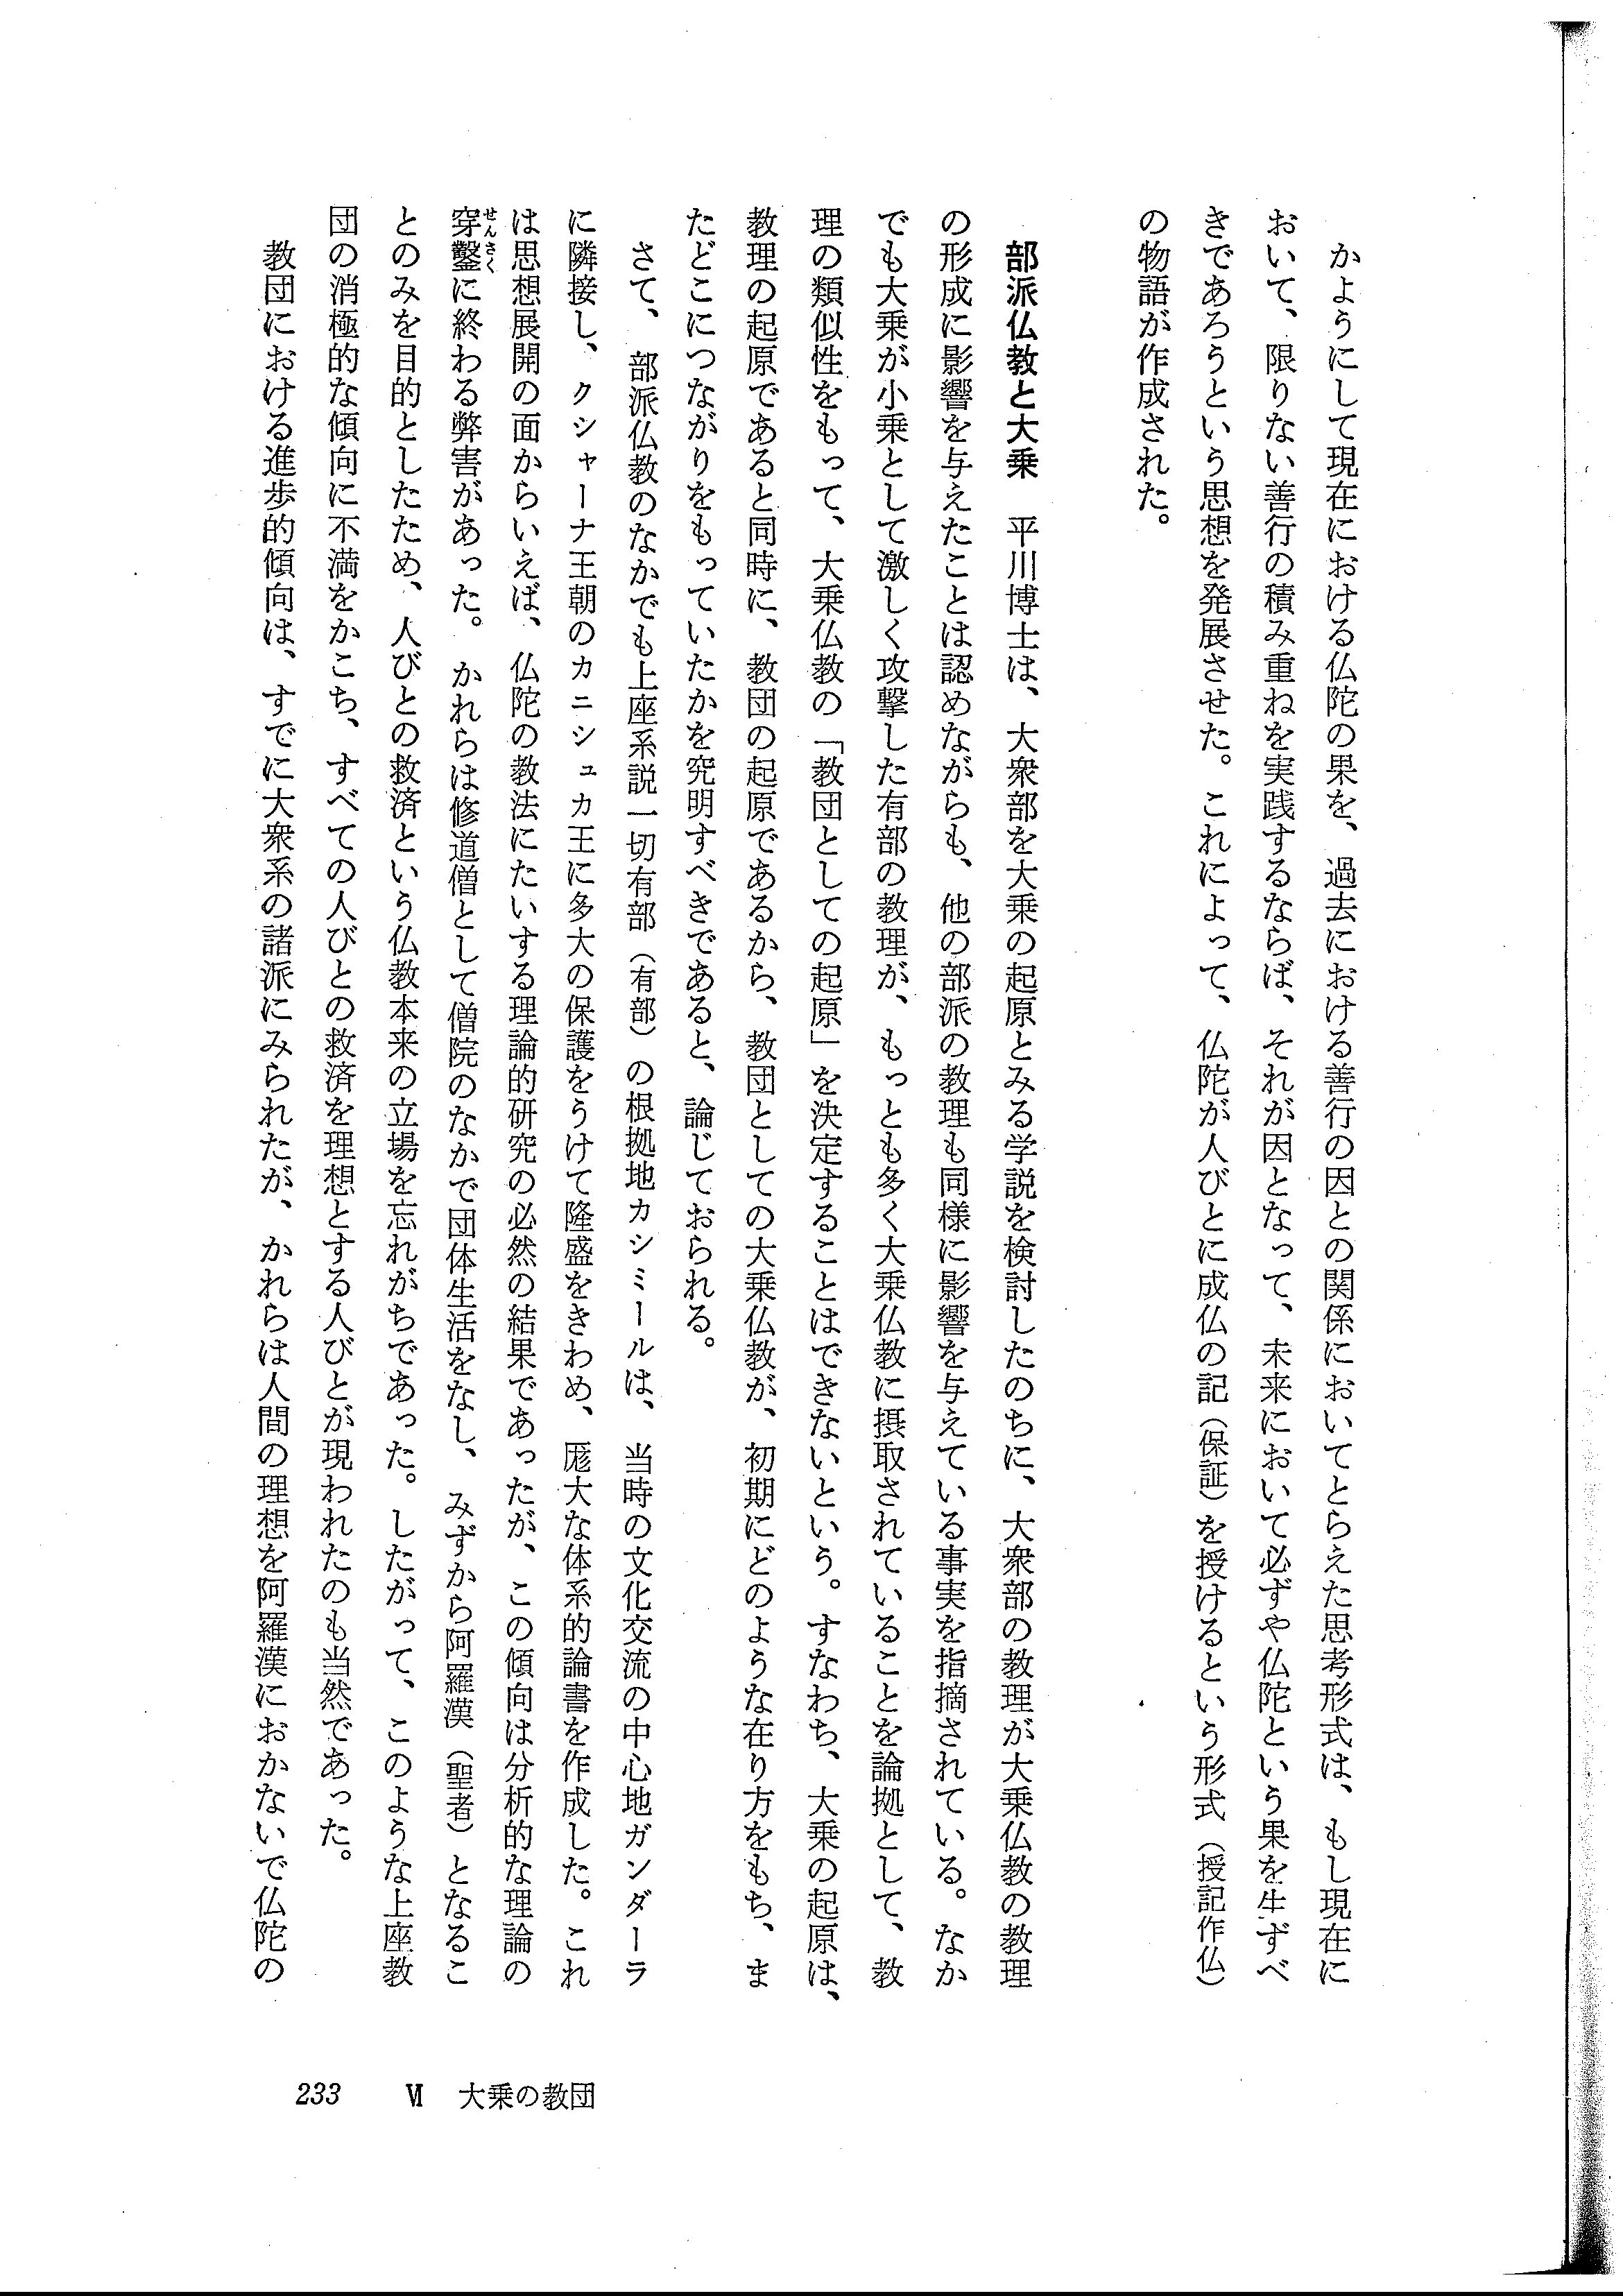 かようにして現在における仏陀の果を、過去における善行の因との関係においてとらえた思考形式は、もし現在に
おいて、限りない善行の積み重ねを実践するならば、それが因となって、未来において必ずや仏陀という果を生ずべ
きであろうという思想を発展させた。これによって、仏陀が人びとに成仏の記（保証）を授けるという形式（授記作仏）
の物語が作成された。
部派仏教と大乗　平川博士は、大衆部を大乗の起原とみる学説を検討したのちに、大衆部の教理が大乗仏教の教理
の形成に影響を与えたことは認めながらも、他の部派の教理も同様に影響を与えている事実を指摘されている。なか
でも大乗が小乗として激しく攻撃した有部の教理が、もっとも多く大乗仏教に摂取されていることを論拠として、教
理の類似性をもって、大乗仏教の「教団としての起原」を決定することはできないという。すなわち、大乗の起原は、
教理の起原であると同時に、教団の起原であるから、教団としての大乗仏教が、初期にどのような在り方をもち、ま
たどこにつながりをもっていたかを究明すべきであると、論じておられる。
さて、部派仏教のなかでも上座系説一切有部（有部）の根拠地カシミールは、当時の文化交流の中心地ガンダーラ
に隣接し、クシャーナ王朝のカニシュカ王に多大の保護をうけて隆盛をきわめ、厖大な体系的論書を作成した。これ
は思想展開の面からいえば、仏陀の教法にたいする理論的研究の必然の結果であったが、この傾向は分析的な理論の
穿鑿せんさくに終わる弊害があった。かれらは修道僧として僧院のなかで団体生活をなし、みずから阿羅漢（聖者）となるこ
とのみを目的としたため、人びとの救済という仏教本来の立場を忘れがちであった。したがって、このような上座教
団の消極的な傾向に不満をかこち、すべての人びとの救済を理想とする人びとが現われたのも当然であった。
教団における進歩的傾向は、すでに大衆系の諸派にみられたが、かれらは人間の理想を阿羅漢におかないで仏陀の
233　Ⅵ　大乗の教団